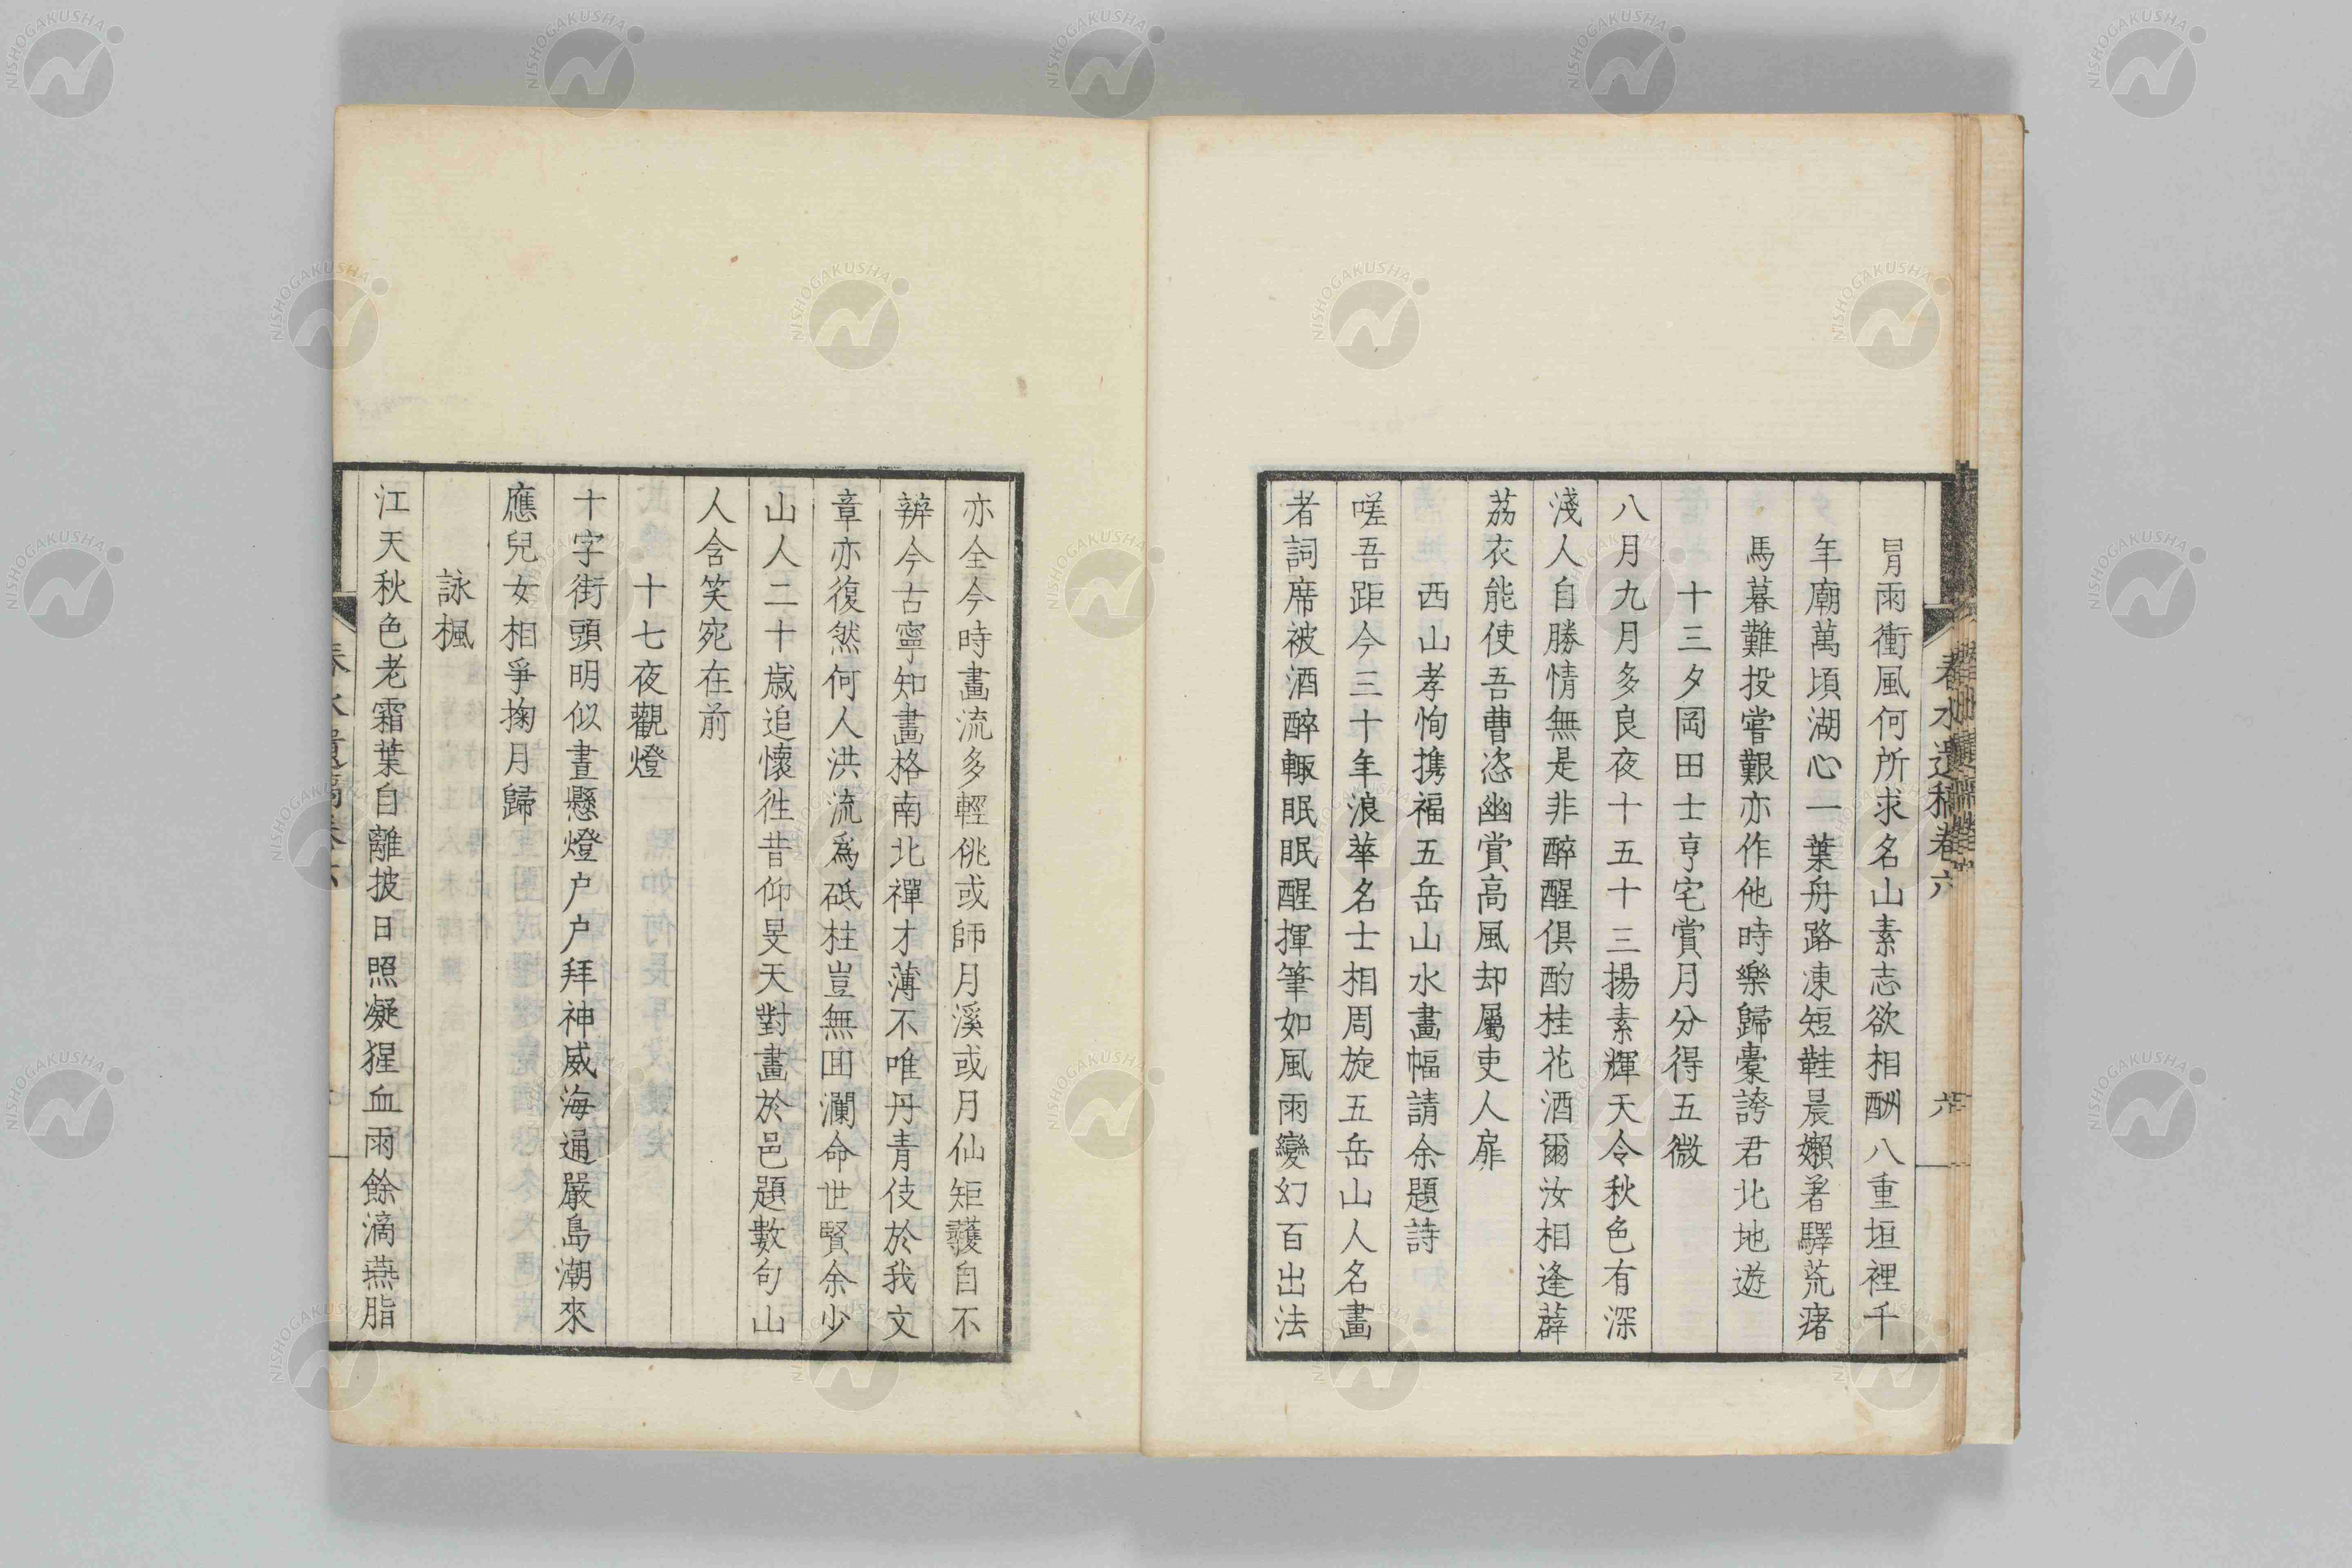 春水遺稿卷六
六
冐雨衝風何所求名山素志欲相酬八重垣裡千
年廟萬頃湖心一葉舟路凍短鞋晨嬾著驛荒瘏
馬暮難投嘗艱亦作他時樂歸橐誇君北地遊
十三夕岡田士亨宅賞月分得五微
八月九月多良夜十五十三揚素輝天令秋色有深
淺人自勝情無是非醉醒俱酌桂花酒爾汝相逢薜
荔衣能使吾曹恣幽賞高風却屬吏人扉
西山孝恂携福五岳山水畫幅請余題詩
嗟吾距今三十年浪華名士相周旋五岳山人名畫
者詞席被酒醉輙眠眠醒揮筆如風雨變幻百出法
亦全今時畫流多輕佻或師月溪或月仙矩矱自不
辨今古寧知畫格南北禪才薄不唯丹青伎於我文
章亦復然何人洪流爲砥柱豈無回瀾命世賢余少
山人二十歲追懷徃昔仰旻天對畫於邑題數句山
人含笑宛在前
十七夜觀燈
十字街頭明似晝懸燈户户拜神威海通嚴島潮來
應兒女相爭掬月歸
詠楓
江天秋色老霜葉自離披日照凝猩血雨餘滴燕脂
春水遺稿卷六
NISHOGAKUSHA